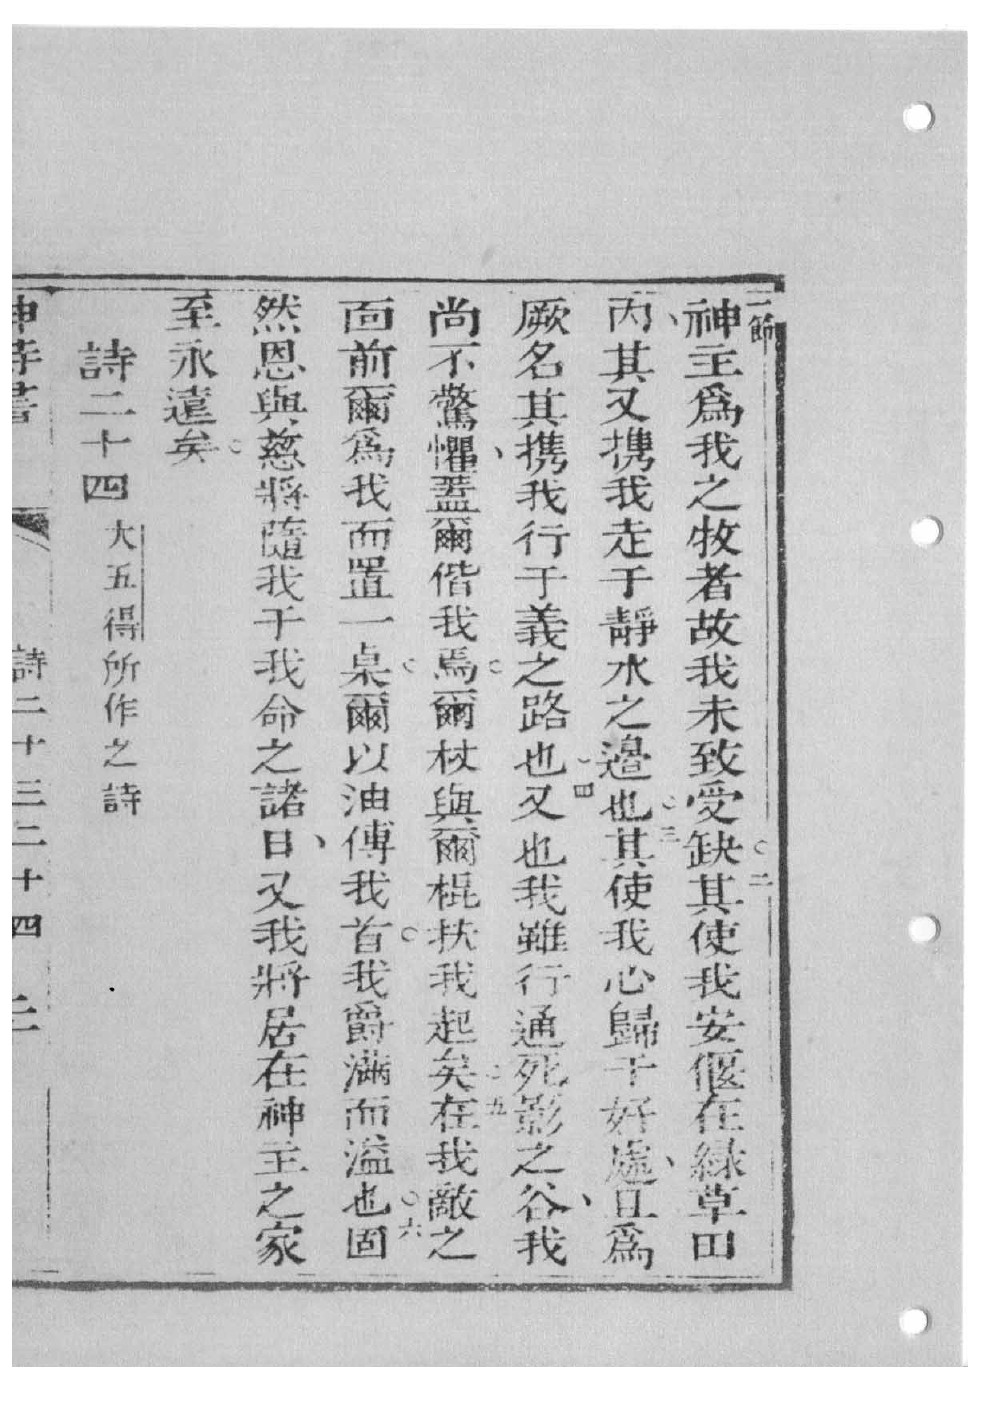 一節
神主爲我之牧者故我未致受缺。二其使我安偃在緑草田
内、其又携我走于靜水之邉也。三其使我心歸于好處、且爲
厥名其携我行于義之路也。四又也我雖行通死影之谷、我
尚不驚懼、葢爾偕我焉。爾杖與爾棍扶我起矣。五在我敵之
面前爾爲我而置一桌。爾以油傅我首。我爵滿而溢也。六固
然恩與慈將隨我于我命之諸日、又我將居在神主之家
至永遠矣。
詩二十四 大五得所作之詩
神詩書 詩二十三二十四 二